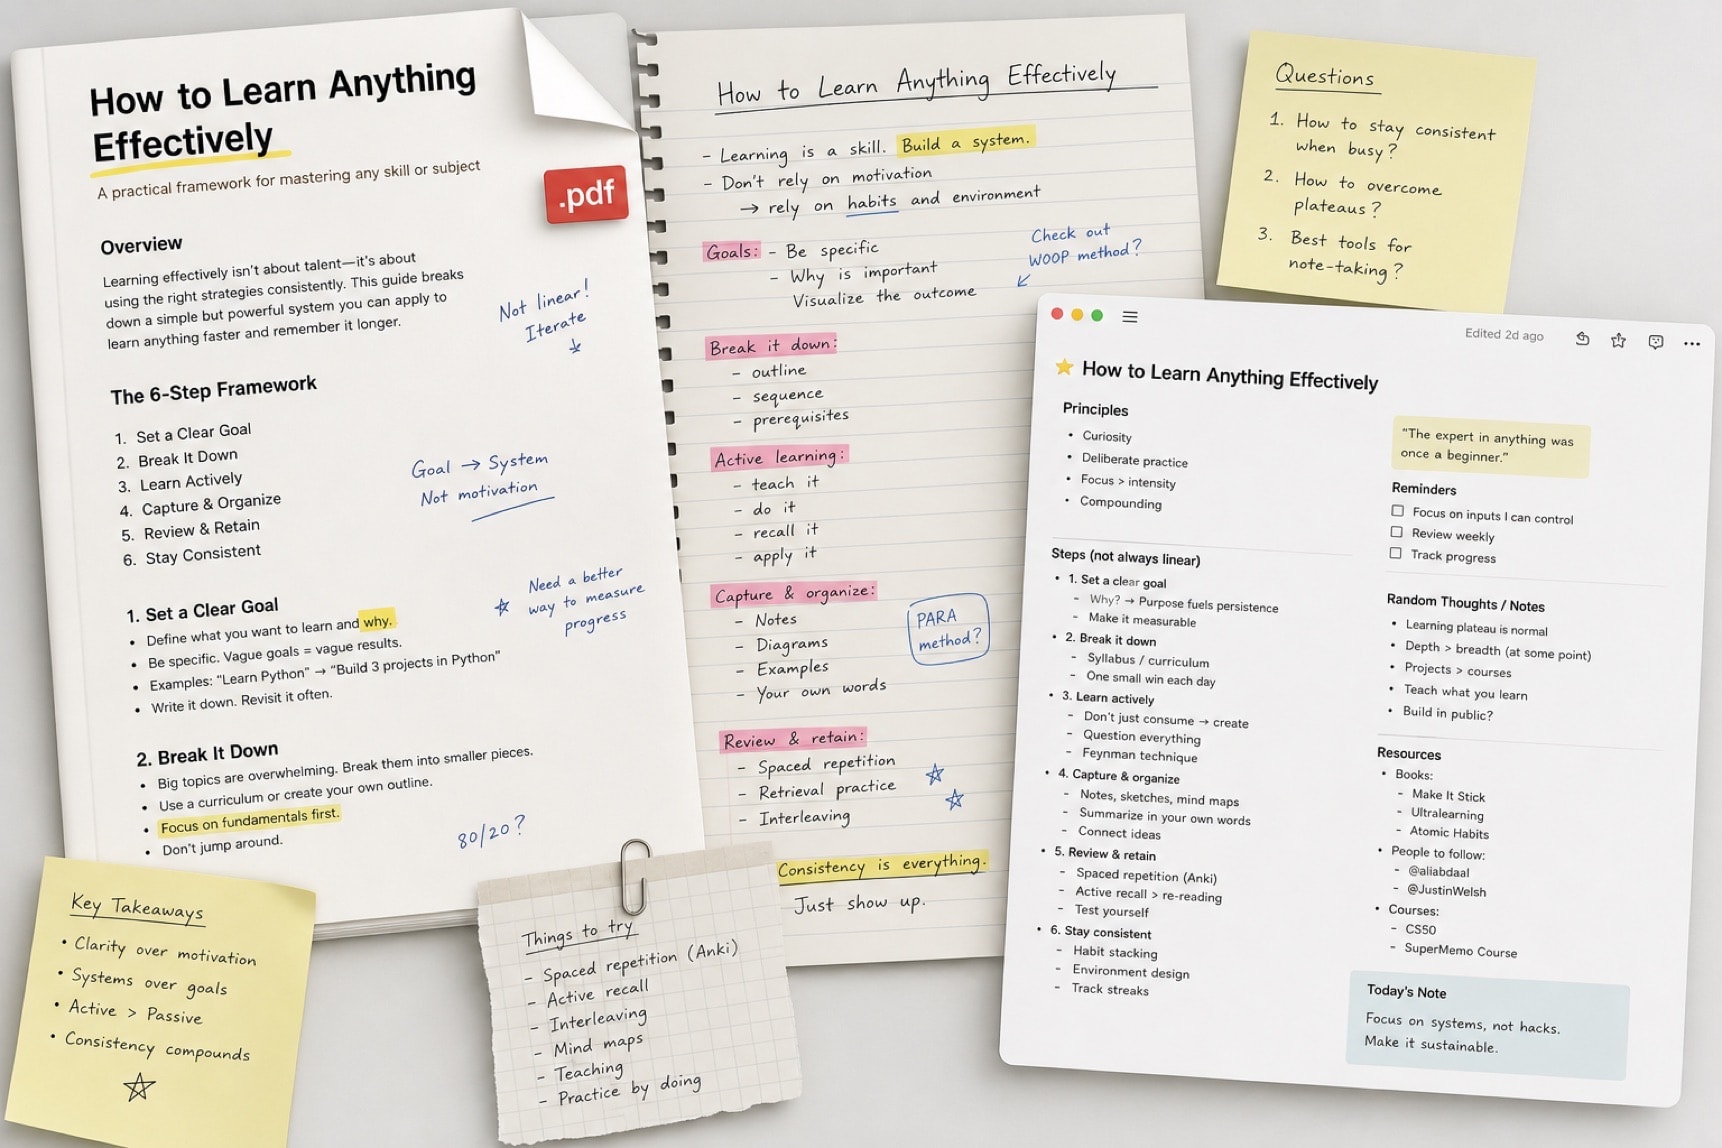 How to Learn Anything
Effectively
A practical framework for mastering any skill or subject
.pdf
Overview
Learning effectively isn't about talent—it's about
using the right strategies consistently. This guide breaks
down a simple but powerful system you can apply to
learn anything faster and remember it longer.
Not linear!
Iterate
The 6-Step Framework
1. Set a Clear Goal
2. Break It Down
3. Learn Actively
4. Capture & Organize
5. Review & Retain
6. Stay Consistent
Goal → System
Not motivation
1. Set a Clear Goal
• Define what you want to learn and why.
• Be specific. Vague goals = vague results.
• Examples: "Learn Python" → "Build 3 projects in Python"
• Write it down. Revisit it often.
☆ Need a better
way to measure
progress
2. Break It Down
• Big topics are overwhelming. Break them into smaller pieces.
• Use a curriculum or create your own outline.
• Focus on fundamentals first.
• Don't jump around.
80/20?
Key Takeaways
• Clarity over motivation
• Systems over goals
• Active > Passive
• Consistency compounds
Things to try
- Spaced repetition (Anki)
- Active recall
- Interleaving
- Mind maps
- Teaching
- Practice by doing
How to Learn Anything Effectively
- Learning is a skill. Build a system.
- Don't rely on motivation
→ rely on habits and environment
Goals: - Be specific
- Why is important
Visualize the outcome
Check out
WOOP method?
Break it down:
- outline
- sequence
- prerequisites
Active learning:
- teach it
- do it
- recall it
- apply it
Capture & organize:
- Notes
- Diagrams
- Examples
- Your own words
PARA
method?
Review & retain:
- Spaced repetition
- Retrieval practice
- Interleaving
Consistency is everything.
Just show up.
Questions
1. How to stay consistent
when busy?
2. How to overcome
plateaus?
3. Best tools for
note-taking?
Edited 2d ago
How to Learn Anything Effectively
Principles
• Curiosity
• Deliberate practice
• Focus > intensity
• Compounding
Steps (not always linear)
• 1. Set a clear goal
- Why? → Purpose fuels persistence
- Make it measurable
• 2. Break it down
- Syllabus / curriculum
- One small win each day
• 3. Learn actively
- Don't just consume → create
- Question everything
- Feynman technique
• 4. Capture & organize
- Notes, sketches, mind maps
- Summarize in your own words
- Connect ideas
• 5. Review & retain
- Spaced repetition (Anki)
- Active recall > re-reading
- Test yourself
• 6. Stay consistent
- Habit stacking
- Environment design
- Track streaks
"The expert in anything was
once a beginner."
Reminders
Focus on inputs I can control
Review weekly
Track progress
Random Thoughts / Notes
• Learning plateau is normal
• Depth > breadth (at some point)
• Projects > courses
• Teach what you learn
• Build in public?
Resources
• Books:
- Make It Stick
- Ultralearning
- Atomic Habits
• People to follow:
- @aliabdaal
- @JustinWelsh
• Courses:
- CS50
- SuperMemo Course
Today's Note
Focus on systems, not hacks.
Make it sustainable.